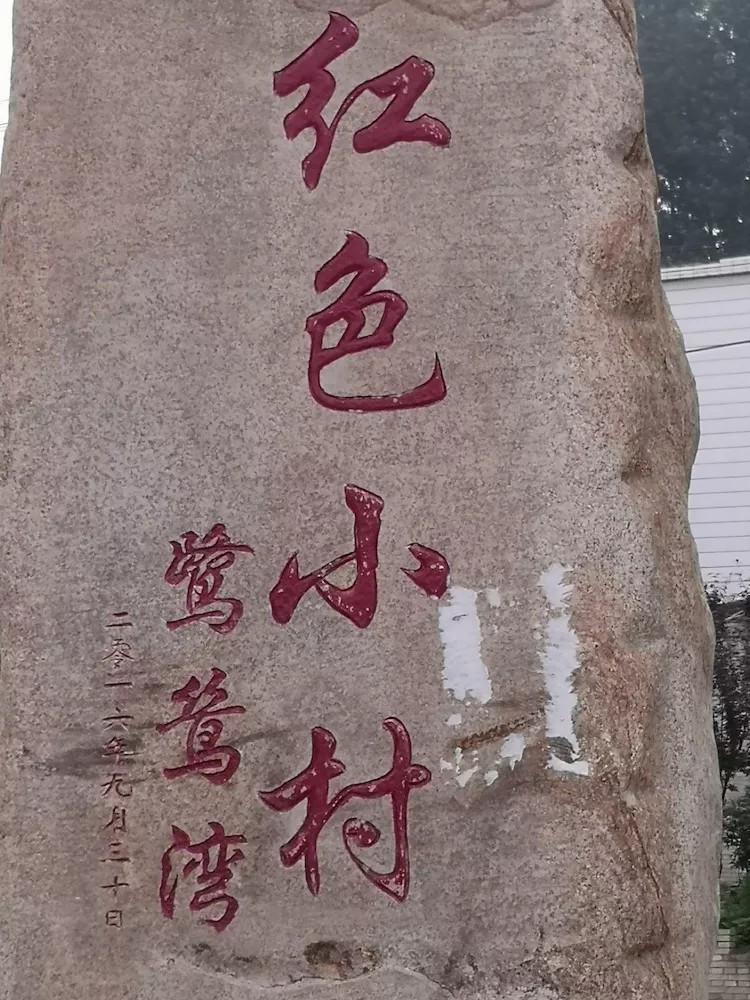 红色小村
鹭鸶湾
二零一六年九月三十日